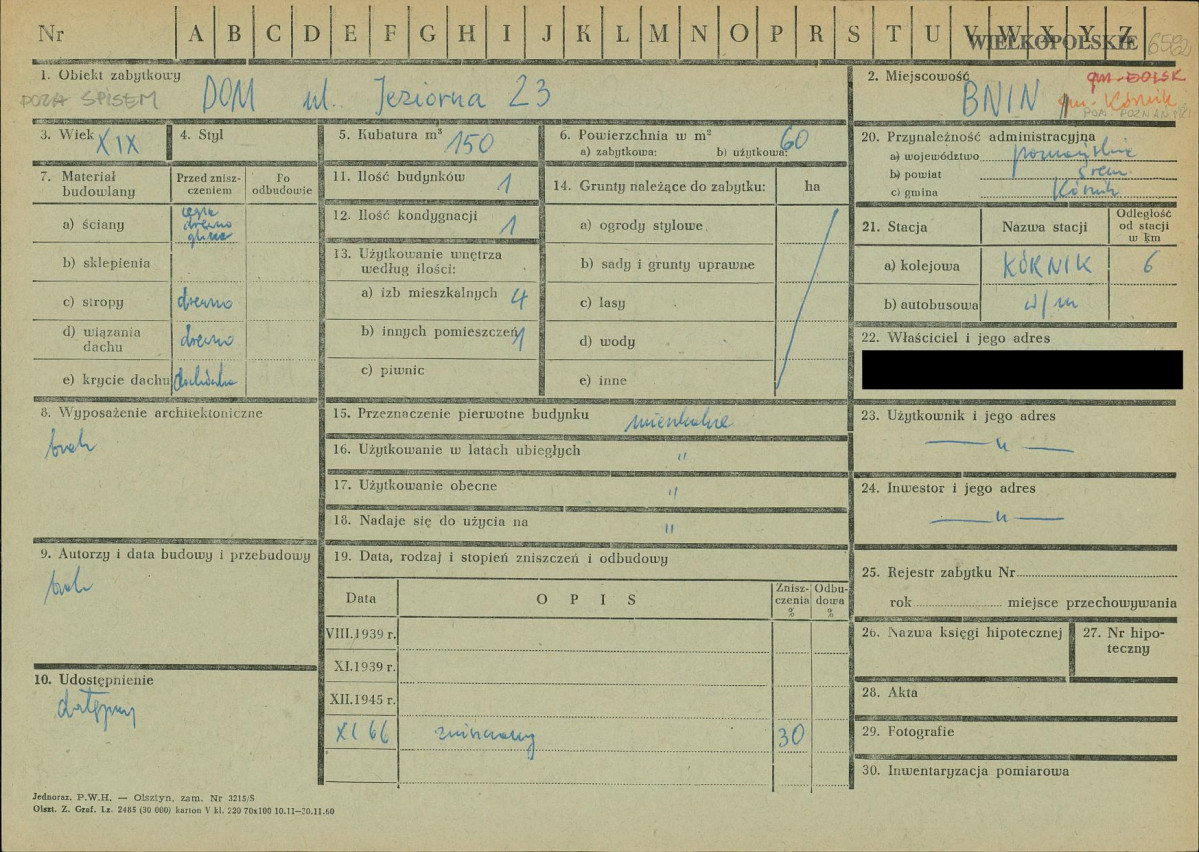 Nr A B C D E F G H I J K L M N O P R S T U V W X Y Z
WIELKOPOLSKIE
1. Obiekt zabytkowy
POZA SPISEM
DOM ul. Jeziorna 23
2. Miejscowość
gm. DOLSK
BNIN gm. Kórnik
POW. POZNAŃSKI
3. Wiek XIX
4. Styl
5. Kubatura m³ 150
6. Powierzchnia w m² 60
a) zabytkowa: b) użytkowa:
7. Materiał budowlany
Przed zniszczeniem
Po odbudowie
a) ściany
cegła
drewno
glina
b) sklepienia
c) stropy drewno
d) wiązania dachu drewno
e) krycie dachu dachówka
8. Wyposażenie architektoniczne
brak
9. Autorzy i data budowy i przebudowy
brak
10. Udostępnienie
dostępny
11. Ilość budynków 1
12. Ilość kondygnacji 1
13. Użytkowanie wnętrza według ilości:
a) izb mieszkalnych 4
b) innych pomieszczeń 1
c) piwnic
14. Grunty należące do zabytku: ha
a) ogrody stylowe
b) sady i grunty uprawne
c) lasy
d) wody
e) inne
15. Przeznaczenie pierwotne budynku mieszkalne
16. Użytkowanie w latach ubiegłych "
17. Użytkowanie obecne "
18. Nadaje się do użycia na "
19. Data, rodzaj i stopień zniszczeń i odbudowy
Data OPIS Zniszczenia % Odbudowa %
VIII.1939 r.
XI.1939 r.
XII.1945 r.
XI 66 zniszczony 30
20. Przynależność administracyjna
a) województwo poznańskie
b) powiat śrem
c) gmina Kórnik
21. Stacja Nazwa stacji Odległość od stacji w km
a) kolejowa KÓRNIK 6
b) autobusowa w/m
22. Właściciel i jego adres
23. Użytkownik i jego adres
— " —
24. Inwestor i jego adres
— " —
25. Rejestr zabytku Nr
rok miejsce przechowywania
26. Nazwa księgi hipotecznej
27. Nr hipoteczny
28. Akta
29. Fotografie
30. Inwentaryzacja pomiarowa
Jednoraz. P.W.H. — Olsztyn, zam. Nr 3215/S
Olszt. Z. Graf. Lz. 2485 (30 000) karton V kl. 220 70x100 10.11—20.11.60